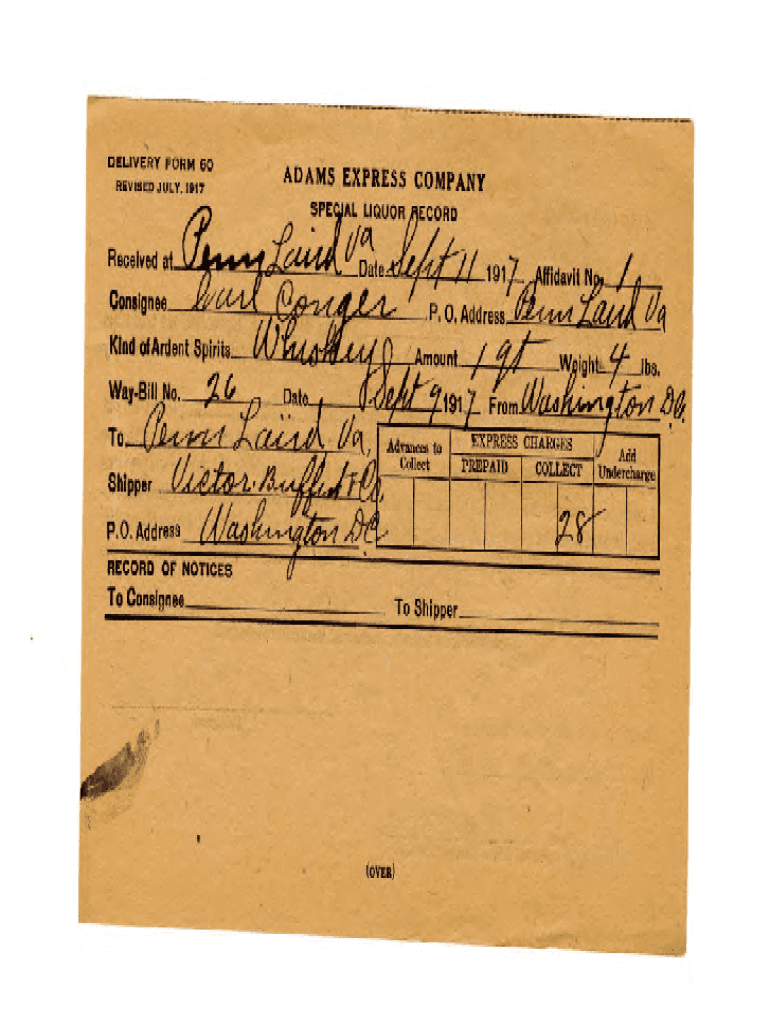 DELIVERY FORM 60
REVISED JULY, 1917
ADAMS EXPRESS COMPANY
SPECIAL LIQUOR RECORD
Received at Penn Laird Va Date Sept 11 1917 Affidavit No. 1
Consignee Carl Conger P. O. Address Penn Laird Va
Kind of Ardent Spirits Whiskey Amount 1 qt Weight 4 lbs.
Way-Bill No. 26 Date Sept 9 1917 From Washington D.C.
To Penn Laird Va,
Shipper Victor Buffet & Co.
P.O. Address Washington DC
Advances to Collect
EXPRESS CHARGES
PREPAID COLLECT
Add Undercharge
28
RECORD OF NOTICES
To Consignee To Shipper
(OVER)